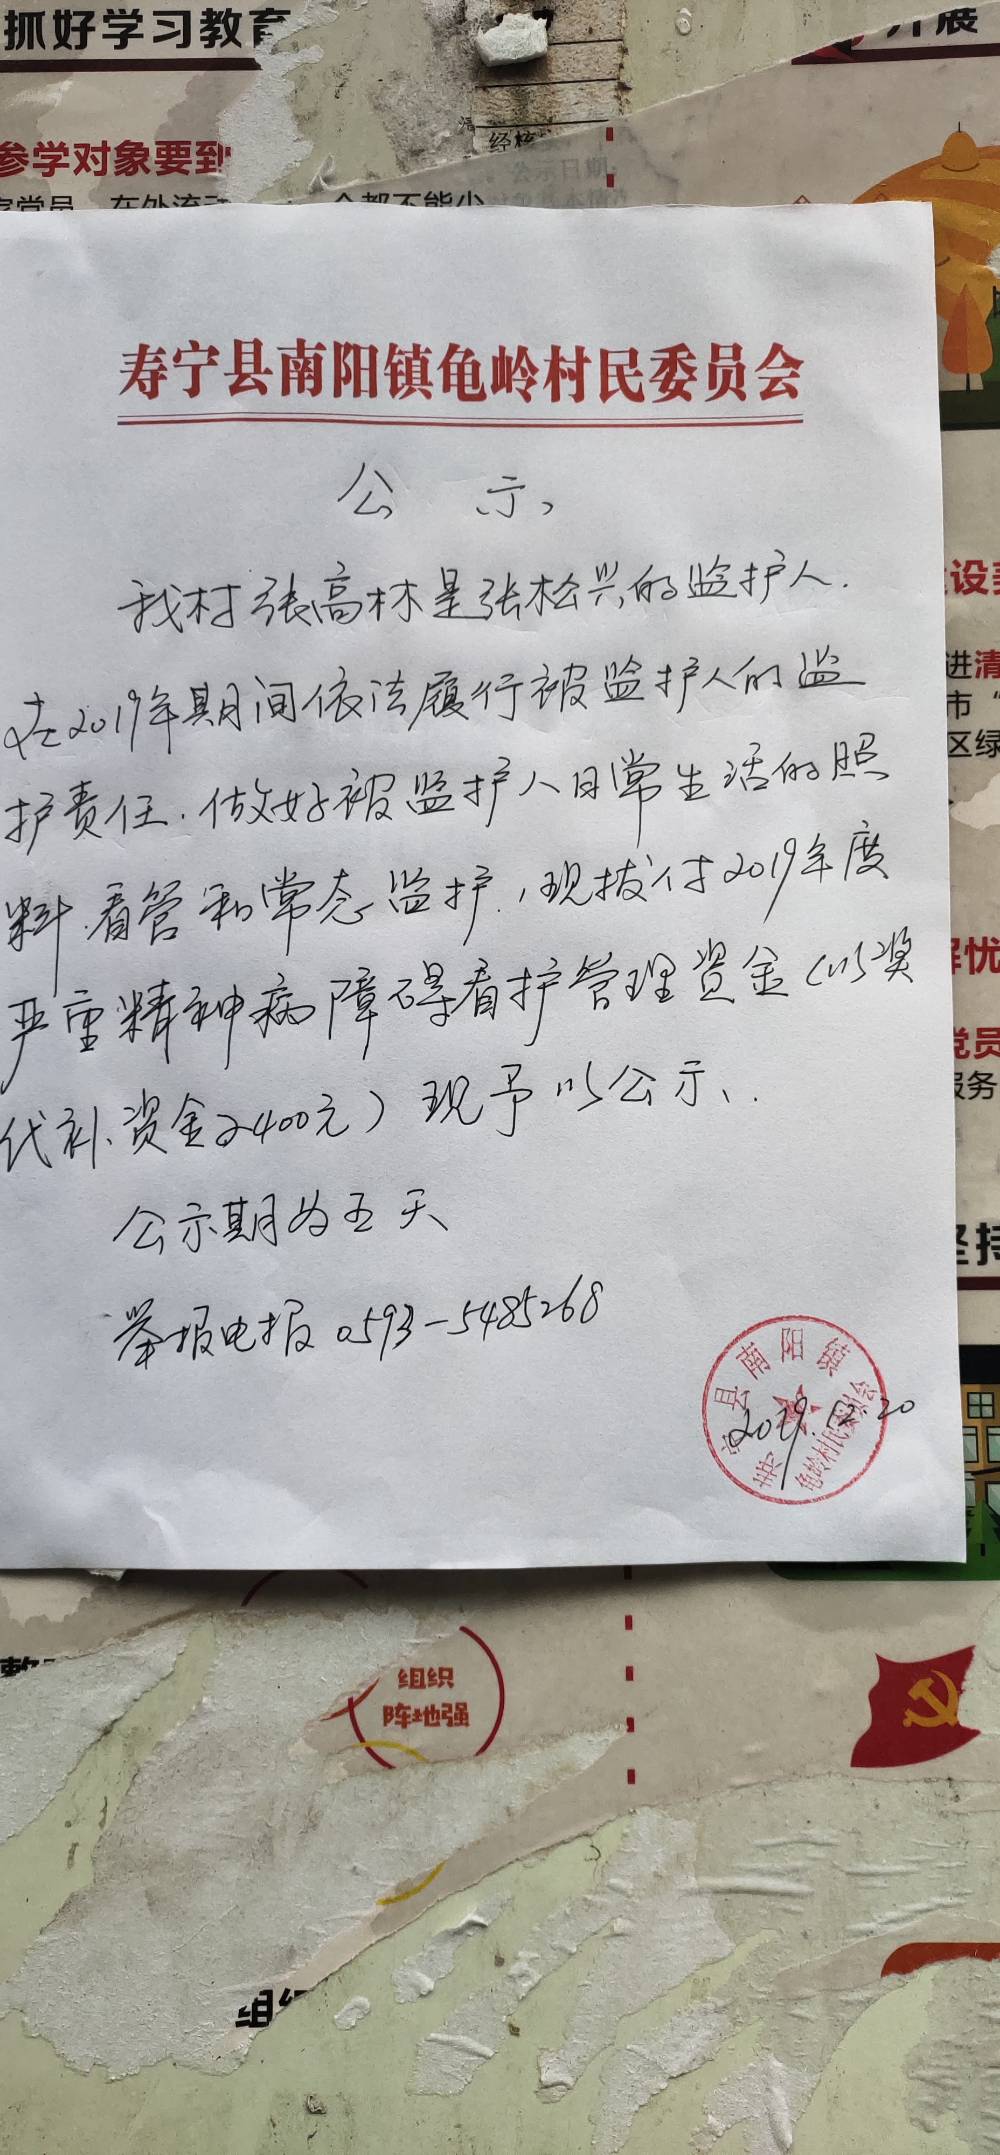 抓好学习教育
开展
参学对象要到
经核
公示日期
寿宁县南阳镇龟岭村民委员会
公 示
我村张高林是张松兴的监护人.
在2019年期间依法履行被监护人的监
护责任.做好被监护人日常生活的照
料.看管和常态监护,现拨付2019年度
严重精神病障碍看护管理资金(以奖
代补资金2400元)现予以公示、.
公示期为五天
举报电报0593-5485268
寿宁县南阳镇
龟岭村民委员会
2019.12.20
设美
进清
市“
区绿
解忧
党员
服务
坚持
组织
阵地强
组织